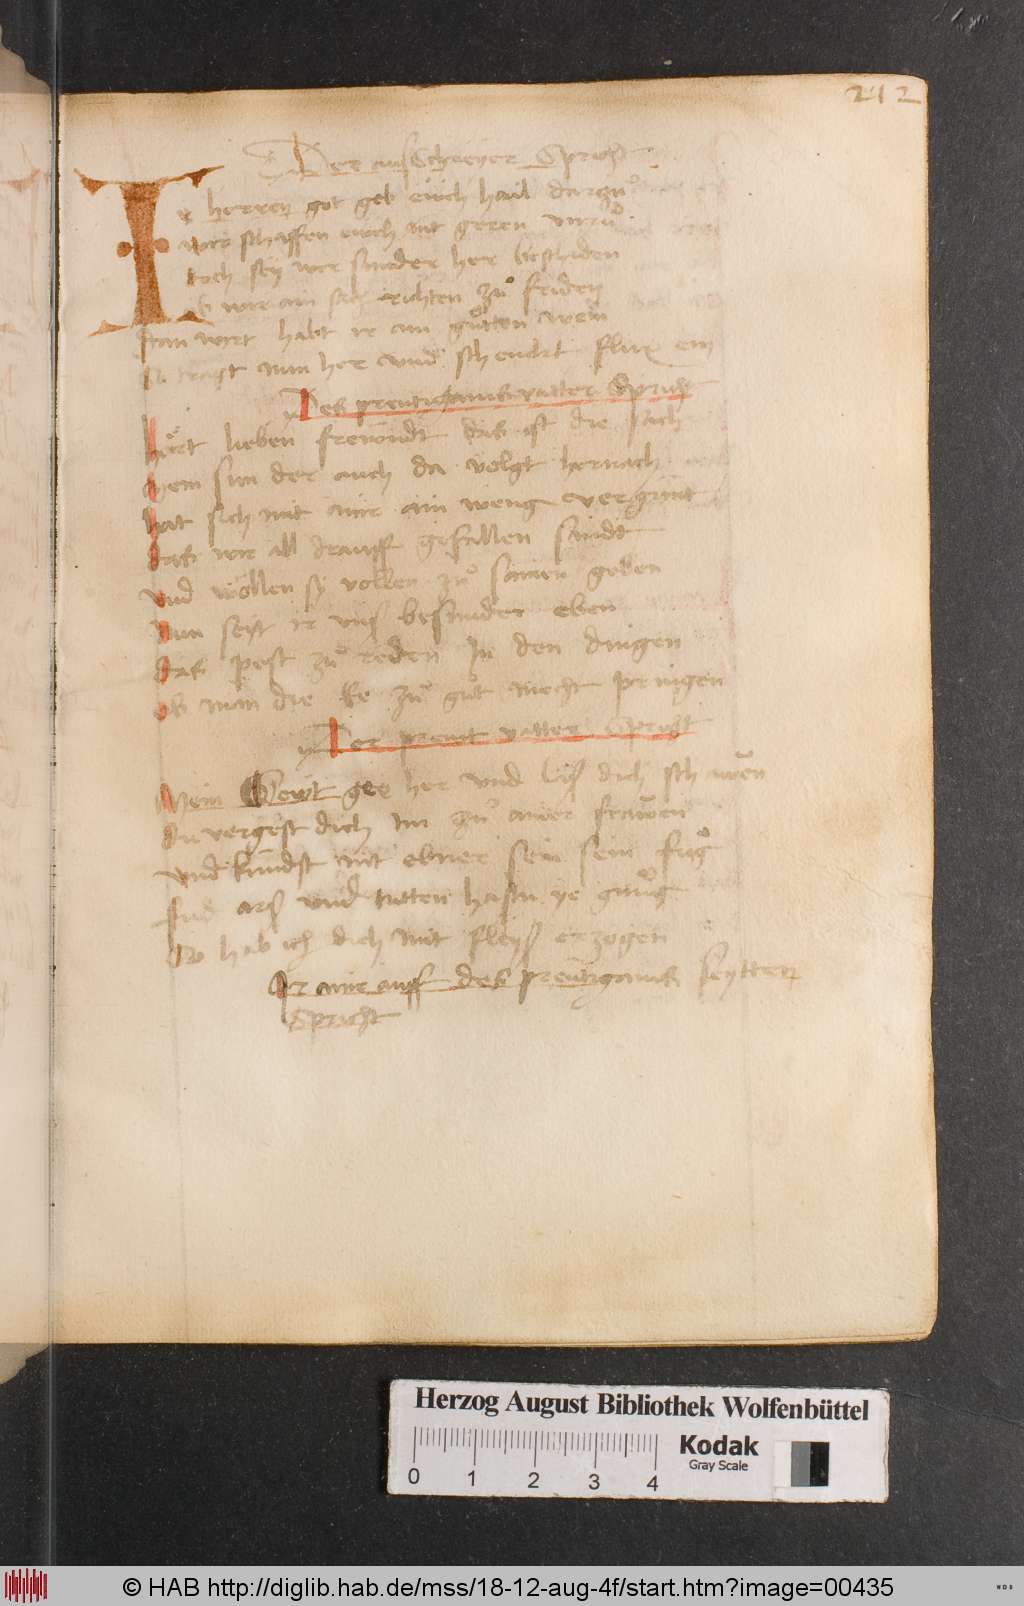 212
Der ausschreyer Spricht
Ir herren got geb eüch hail darzuͦ
wir schaffen eüch nit geren vnruͦ
doch sey wir sunder her beschiden
ob wir ain sach richten zuͦ friden
Frau wirt habt ir ain guͦtten wein
So tragt nun her vnd schenckt flux ein
Des preutigams vatter Spricht
Hört lieben freündt das ist die sach
Mein sun der auch da volgt hernach
hat sich mit mir ain weng
das wir all drauff gefallen sindt
vnd wöllen sy vollen zuͦ samen geben
Nun seyt ir vns besunder eben
das pest zuͦ reden In den dingen
ob man die Ee zuͦ guͦt mecht pringen
Der preut vatter Spricht
Mein gee her vnd laß dich schawen
du vergest dich nu zuͦ ander frawen
vnd kündst mit ebner sein sein fuͦg
Fud arß vnd tutten hastu ye gnuͦg
So hab ich dich mit fleyß erzogen
Ir mir auff des preutigams seytten
Spricht
Herzog August Bibliothek Wolfenbüttel
0 1 2 3 4
Kodak
Gray Scale
© HAB http://diglib.hab.de/mss/18-12-aug-4f/start.htm?image=00435